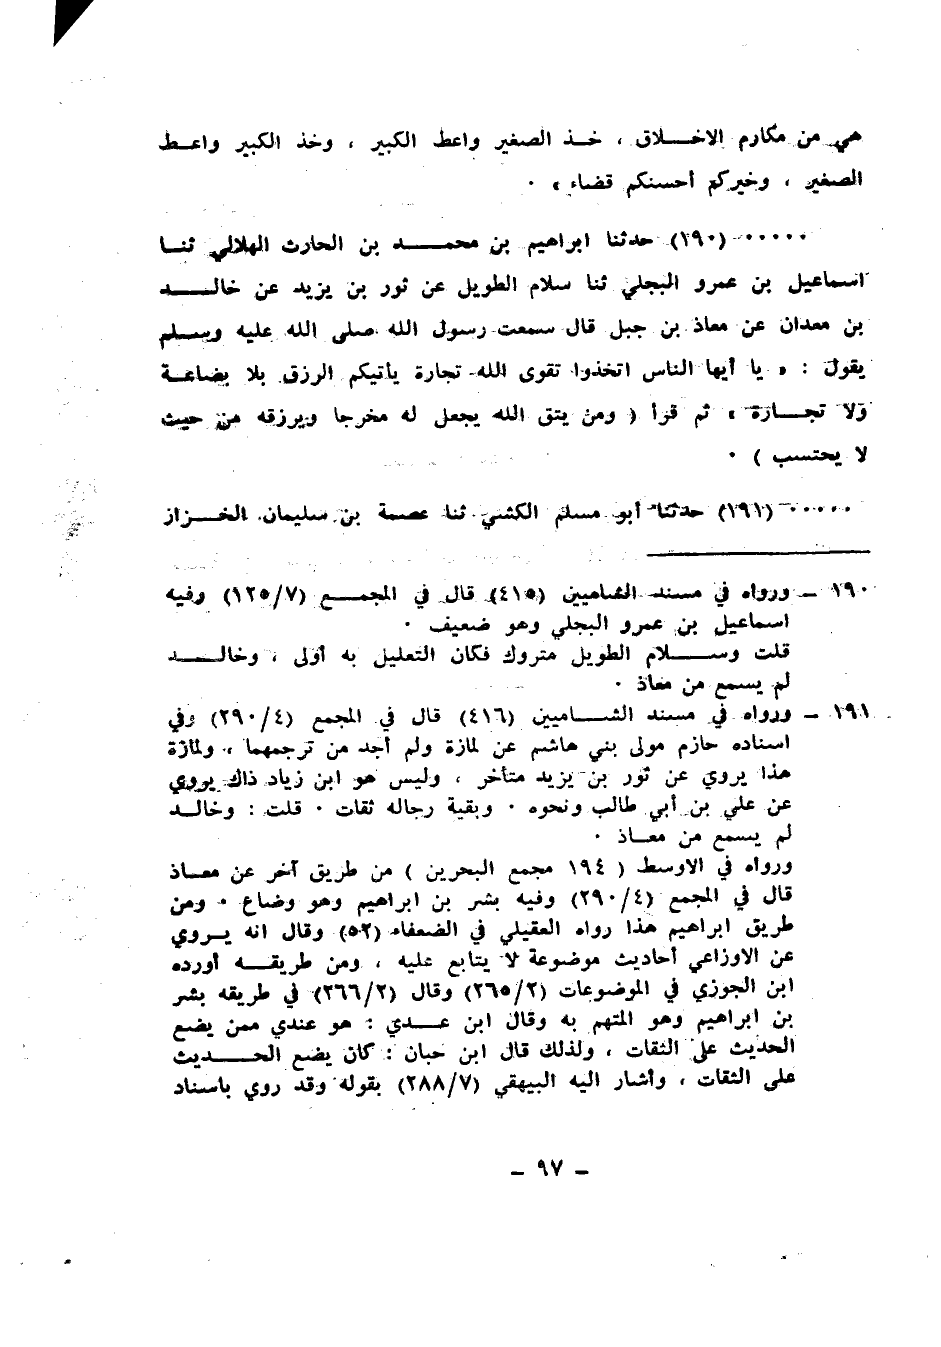 هي من مكارم الاخـــلاق ، خـذ الصغير واعط الكبير ، وخذ الكبير واعـط
الصغير ، وخيركم أحسنكم قضاء » ٠
٠٠٠٠٠ (١٩٠) حدثنا ابراهيم بن محمــــد بن الحارث الهلالي ثنـا
اسماعيل بن عمرو البجلي ثنا سلام الطويل عن ثور بن يزيد عن خالــــد
بن معدان عن معاذ بن جبل قال سمعت رسول الله صلى الله عليه وسـلم
يقول : « يا أيها الناس اتخذوا تقوى الله تجارة يأتيكم الرزق بلا بضاعـة
ولا تجـــارة » ثم قرأ ( ومن يتق الله يجعل له مخرجا ويرزقه من حيث
لا يحتسب ) ٠
٠٠٠٠٠ (١٩١) حدثنا أبو مسلم الكشي ثنا عصمة بن سليمان الخـــزاز
١٩٠ ــ ورواه في مسند الشاميين (٤١٥) قال في المجمـــع (١٢٥/٧) وفيه
اسماعيل بن عمرو البجلي وهو ضعيف ٠
قلت وســـلام الطويل متروك فكان التعليل به أولى ، وخالــــد
لم يسمع من معاذ ٠
١٩١ ــ ورواه في مسند الشـــاميين (٤١٦) قال في المجمع (٢٩٠/٤) وفي
اسناده حازم مولى بني هاشم عن لمازة ولم أجد من ترجمهما ، ولمازة
هذا يروي عن ثور بن يزيد متأخر ، وليس هو ابن زياد ذاك يروي
عن علي بن أبي طالب ونحوه ٠ وبقية رجاله ثقات ٠ قلت : وخالــد
لم يسمع من معــاذ ٠
ورواه في الاوسط ( ١٩٤ مجمع البحرين ) من طريق آخر عن معــاذ
قال في المجمع (٢٩٠/٤) وفيه بشر بن ابراهيم وهو وضاع ٠ ومن
طريق ابراهيم هذا رواه العقيلي في الضعفاء (٥٢) وقال انه يــروي
عن الاوزاعي أحاديث موضوعة لا يتابع عليه ، ومن طريقــه أورده
ابن الجوزي في الموضوعات (٢٦٥/٢) وقال (٢٦٦/٢) في طريقه بشر
بن ابراهيم وهو المتهم به وقال ابن عــدي : هو عندي ممن يضع
الحديث على الثقات ، ولذلك قال ابن حبان : كان يضع الحـــديث
على الثقات ، وأشار اليه البيهقي (٢٨٨/٧) بقوله وقد روي باسناد
ــ ٩٧ ــ